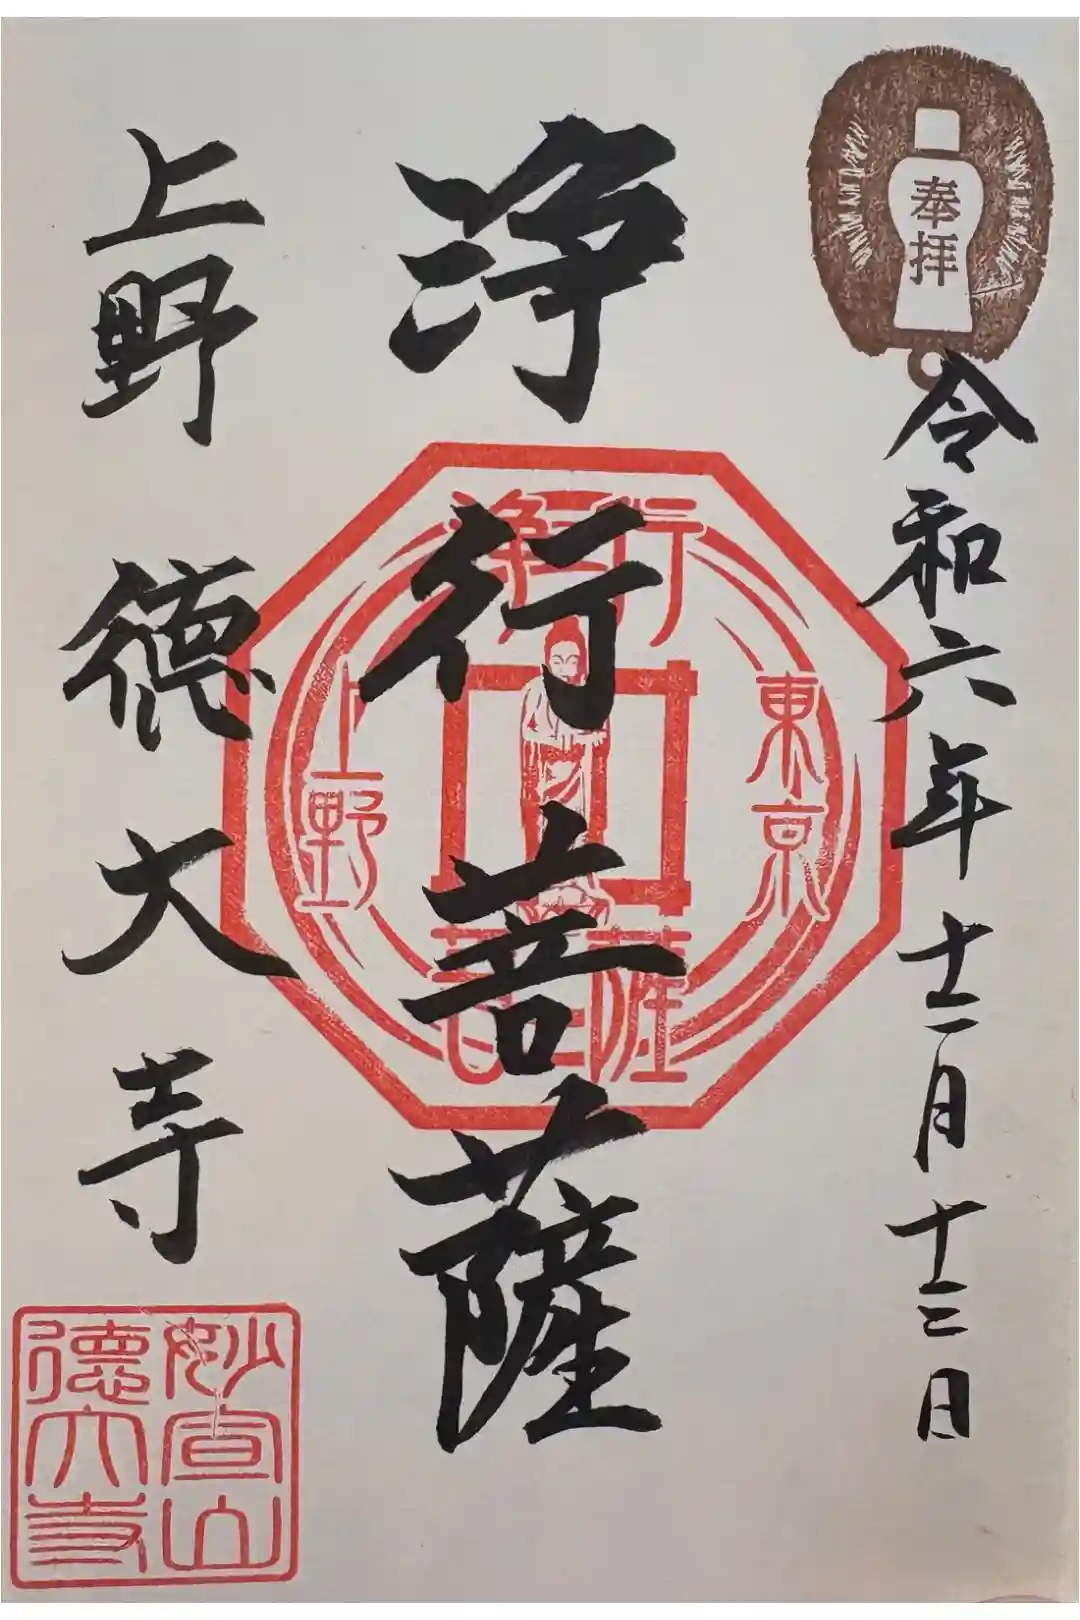 奉拝
令和六年十二月十三日
浄行菩薩
上野 徳大寺
浄行
菩薩
東京
上野
妙宣山
徳大寺